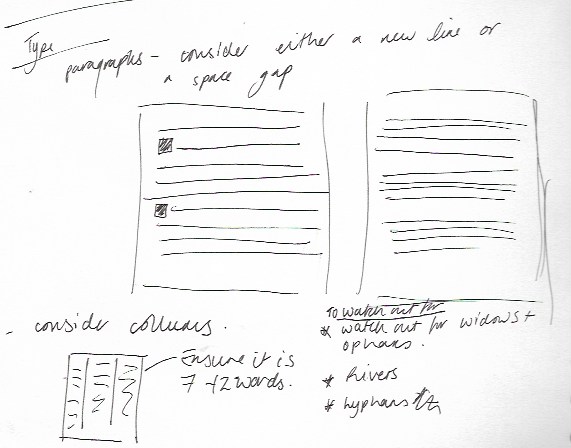 Type
paragraphs - consider either a new line or
a space gap
- consider collumns.
Ensure it is
7-12 words.
To watch out for
* watch out for widows +
ophans.
* Rivers
* hyphans